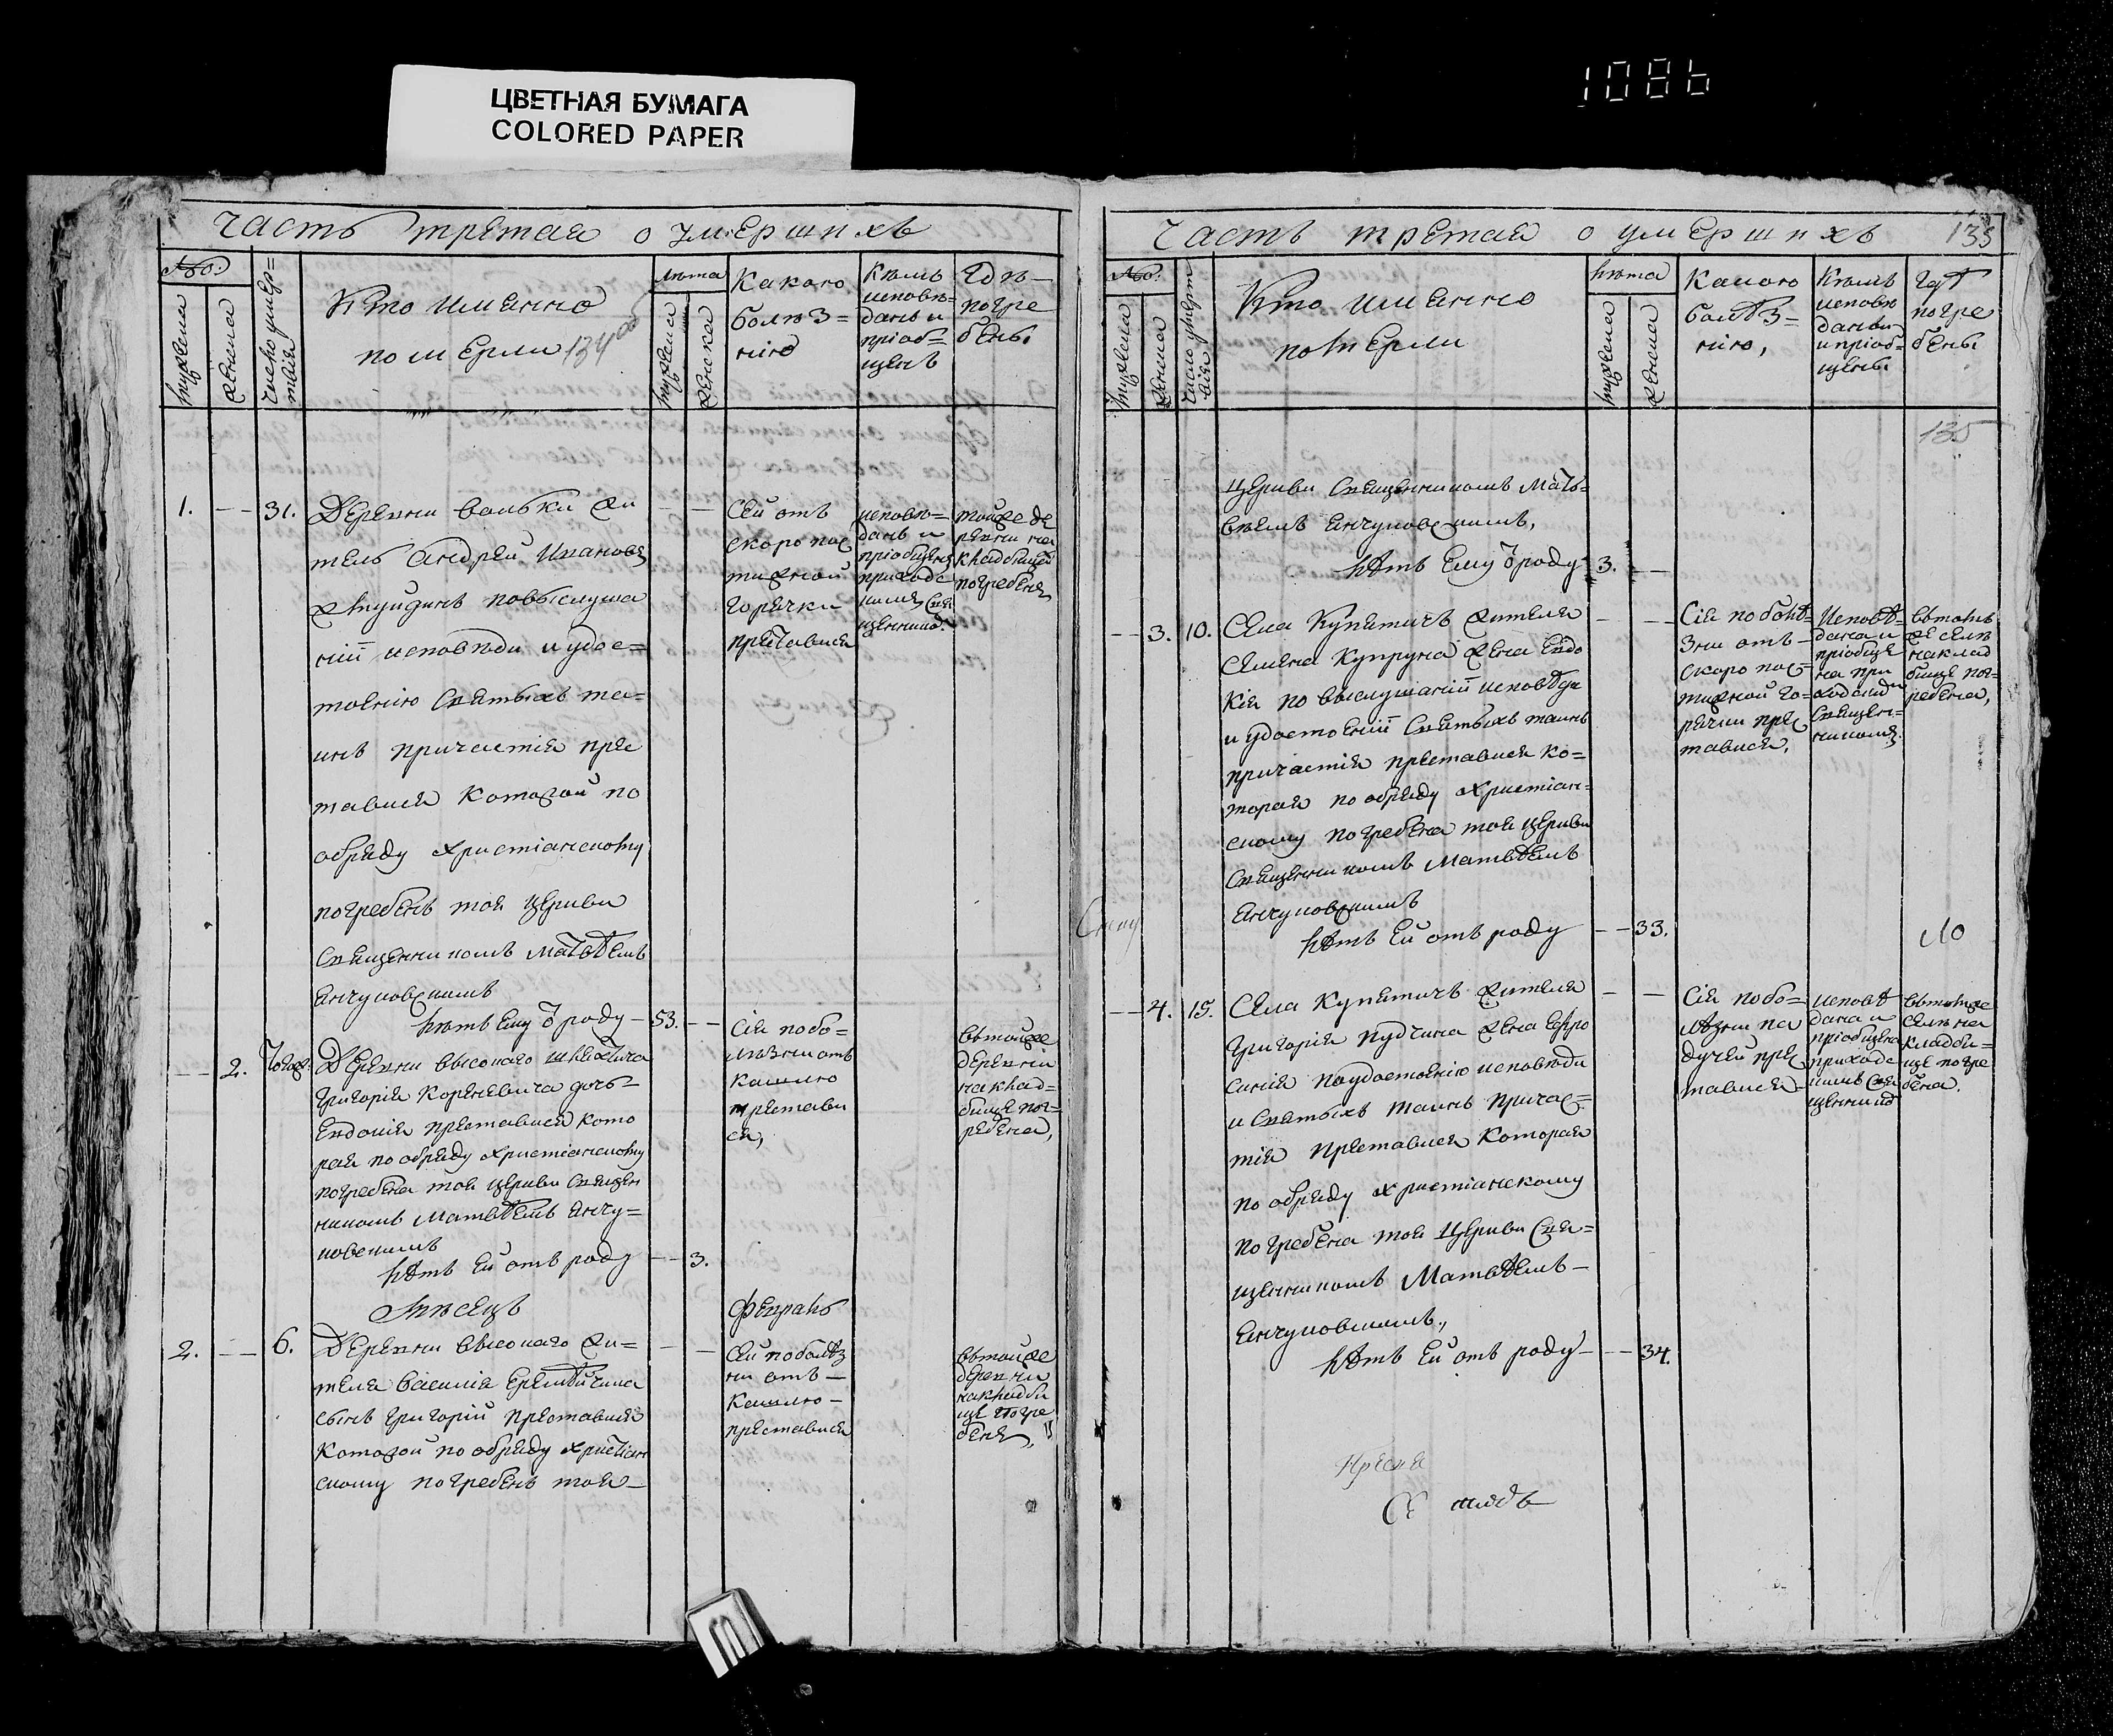 ЦВЕТНАЯ БУМАГА
COLORED PAPER
1086
Часть третая о умершихъ
№:
мужеска
женска
Число умер=
твія
Кто имянно
померли 134об
лѣта
мужеска
женска
Какою
болѣз=
нію
Кѣмъ
исповѣ=
данъ и
пріоб=
щенъ
Гдѣ
погре
бены
1. — — 31.
Деревни Вольки жи
тель Андрей Ивановъ
по выслуша
ніи исповѣди и удос=
тоенію Святыхъ та=
инъ причастія прес
тавися которой по
обряду христіанскому
погребенъ тоя церкви
Священникомъ Матвѣемъ
Анчуковскимъ
лѣтъ ему ѿ роду — 53. —
Сей отъ
скоропос
тижной
горячки
преставися
исповѣ=
данъ и
пріобщенъ
приходс
кимъ Свя
щенник.
тойже де
ревни на
кладбищи
погребенъ
— — 2.
Деревни Высокаго шляхтича
Григорія Кореневича дочь
Евдокія преставися кото
рая по обряду христіанскому
погребена тоя церкви Священ
никомъ Матвѣемъ Анчу=
ковскимъ
лѣтъ ей отъ роду — — 3.
Сія по бо=
лѣзни отъ
кашлю
престави
ся,
въ тойже
деревни
на клад=
бище пог=
ребена,
Мѣсяцъ Февраль
2. — — 6.
Деревни Высокаго жи=
теля Василія
сынъ Григорій преставися
которой по обряду христіан
скому погребенъ тоя
Сей по болѣз
ни отъ —
кашлю —
преставися
въ тойже
деревни
на кладби
ще погре
бенъ,
Часть третая о умершихъ 135
№:
мужеска
женска
Число умерт
вія
Кто имянно
померли
лѣта
мужеска
женска
Какою
болѣз=
нію,
Кѣмъ
исповѣ
данъ
и пріоб=
щены
Гдѣ
погре
бены
135
церкви Священникомъ Мат=
вѣемъ Анчуковскимъ,
лѣтъ ему ѿ роду 3. —
— 3. 10.
Села Купятичъ жителя
Семена Купруна жена Евдо
кія по выслушаніи исповѣди
и удостоеніи Святыхъ таинъ
причастія преставися ко=
торая по обряду христіан=
скому погребена тоя церкви
Священникомъ Матвѣемъ
Анчуковскимъ
лѣтъ ей отъ роду — — 33.
Сія по болѣ=
зни отъ —
скоропос=
тижной го=
рячки прес
тавися,
Исповѣ=
дана и
пріобще
на при
ходским
Священ=
никомъ
въ томъ
же селѣ
на клад
бище пог=
ребена,
по
— 4. 15.
Села Купятичъ жителя
Григорія Пудчина жена Евфро
синія по удостоенію исповѣди
и Святыхъ таинъ причас=
тія преставися которая
по обряду христіанскому
погребена тоя церкви Свя=
щенникомъ Матвѣемъ —
Анчуковскимъ,
лѣтъ ей отъ роду — — 34.
Сія по бо=
лѣзни па
дучей прес
тавися
исповѣ
дана и
пріобщена
приходс
кимъ Свя
щенником
въ томже
селѣ на
кладби=
ще погре
бена.